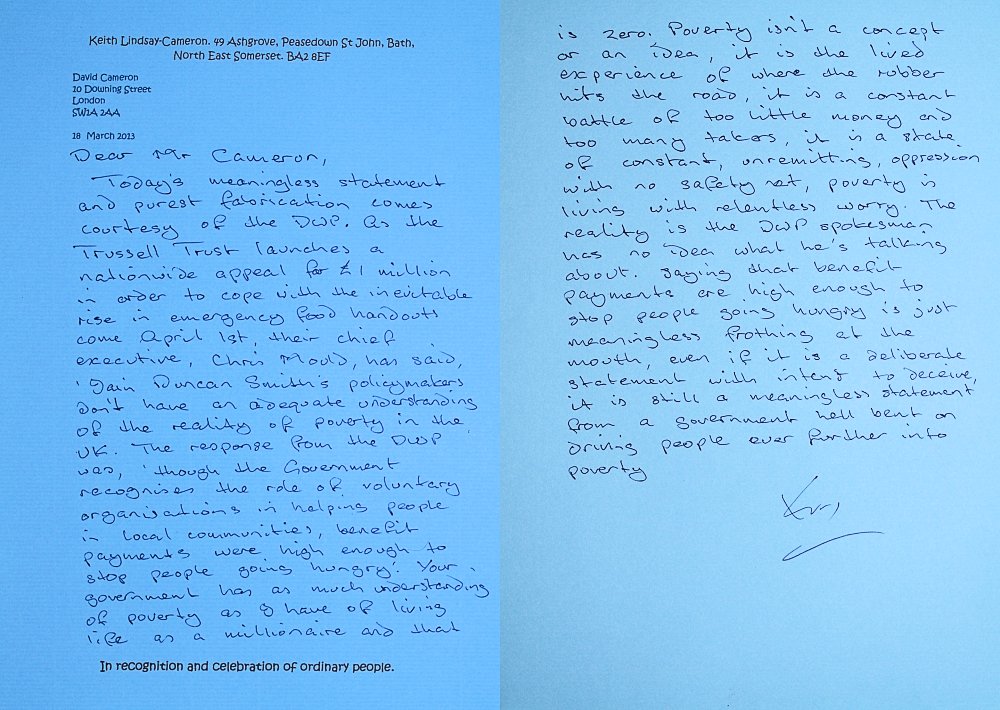 Keith Lindsay-Cameron. 49 Ashgrove, Peasedown St John, Bath,
North East Somerset. BA2 8EF
David Cameron
10 Downing Street
London
SW1A 2AA
18 March 2013
Dear Mr Cameron,
Today's meaningless statement
and purest fabrication comes
courtesy of the DWP. As the
Trussell Trust launches a
nationwide appeal for £1 million
in order to cope with the inevitable
rise in emergency food handouts
come April 1st, their chief
executive, Chris Mould, has said,
'Iain Duncan Smith's policymakers
don't have an adequate understanding
of the reality of poverty in the
UK. The response from the DWP
was, 'though the Government
recognises the role of voluntary
organisations in helping people
in local communities, benefit
payments were high enough to
stop people going hungry'. Your
government has as much understanding
of poverty as I have of living
life as a millionaire and that
In recognition and celebration of ordinary people.
is zero. Poverty isn't a concept
or an idea, it is the lived
experience of where the rubber
hits the road, it is a constant
battle of too little money and
too many takers, it is a state
of constant, unremitting, oppression
with no safety net, poverty is
living with relentless worry. The
reality is the DWP spokesman
has no idea what he's talking
about. Saying that benefit
payments are high enough to
stop people going hungry is just
meaningless frothing at the
mouth, even if it is a deliberate
statement with intent to deceive,
it is still a meaningless statement
from a government hell bent on
driving people ever further into
poverty